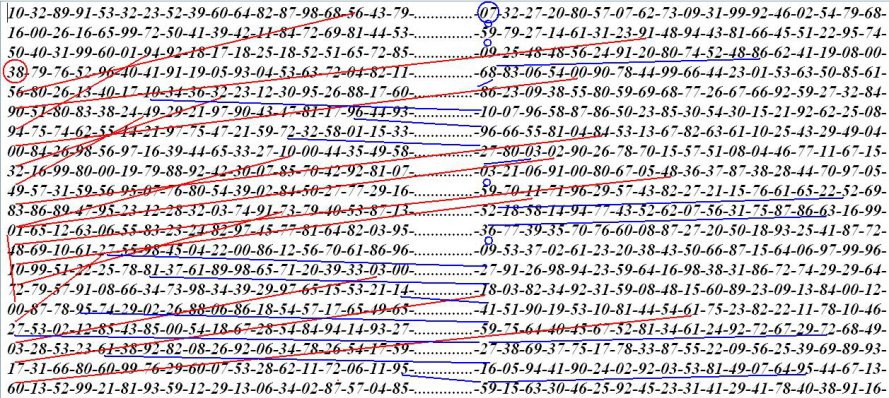 10-32-89-91-53-32-23-52-39-60-64-82-87-98-68-56-43-79-...............-07-32-27-20-80-57-07-62-73-09-31-99-92-46-02-54-79-68-
16-00-26-16-65-99-72-50-41-39-42-11-84-72-69-81-44-53-...............-59-79-27-14-61-31-23-31-48-94-43-81-66-45-51-22-95-74-
50-40-31-99-60-01-94-92-18-17-18-25-18-52-51-65-72-85-...............-09-25-48-48-56-24-91-20-80-74-52-48-86-62-41-19-08-00-
38-79-76-52-96-40-41-91-19-05-93-04-53-63-72-04-82-11-...............-68-83-06-54-00-90-78-44-99-66-44-23-01-53-63-50-85-61-
56-80-26-13-40-17-40-34-39-32-23-12-30-95-26-88-17-60-...............-86-23-09-38-55-80-59-69-68-77-26-67-66-92-59-62-32-84-
90-51-80-83-38-24-79-29-21-97-90-43-17-81-96-44-93-...............-10-07-96-58-87-86-50-23-85-30-54-30-15-21-92-21-25-07-
94-75-74-62-55-44-21-75-47-21-59-72-32-58-01-15-33-...............-96-66-55-81-04-84-53-13-67-82-63-61-10-25-43-29-49-04-
00-84-26-98-56-97-16-39-44-65-33-27-10-00-44-80-58-...............-27-80-03-02-90-26-78-70-15-57-51-08-04-46-77-11-67-15-
32-16-99-80-00-19-79-88-92-42-30-07-85-70-42-92-81-07-...............-03-21-06-91-00-80-67-54-48-36-37-87-38-28-44-70-97-05-
49-57-31-59-56-95-07-80-54-39-02-84-50-27-77-29-16-...............-59-70-17-96-29-57-43-82-27-21-15-76-61-65-22-52-69-
83-86-89-47-95-23-12-28-32-03-74-91-73-79-40-53-87-13-...............-52-18-58-14-94-77-42-62-07-56-31-75-87-86-63-16-99-
01-65-12-63-06-55-23-24-82-97-45-77-81-64-82-03-95-...............-30-77-39-35-70-76-60-08-87-27-20-50-18-93-25-41-87-72-
48-60-10-61-27-55-98-45-04-22-00-86-12-56-70-61-86-96-...............-09-53-37-02-61-21-32-20-38-43-50-66-87-15-64-06-97-99-96-
10-99-51-27-25-78-81-37-61-89-98-65-71-20-39-33-03-00-...............-27-91-26-98-94-23-59-64-16-98-38-31-86-72-74-29-29-64-
27-79-57-91-08-66-34-73-98-34-39-29-97-65-15-53-21-14-...............-18-03-82-34-92-31-59-08-48-15-60-89-23-09-13-84-00-12-
00-87-78-95-74-29-02-76-88-60-06-86-18-54-57-17-65-49-65-...............-41-51-90-19-53-10-81-41-54-61-61-75-23-82-22-11-78-10-46-
17-31-66-80-60-99-76-29-60-07-53-28-62-11-72-06-11-95-...............-16-05-94-41-90-24-02-92-03-53-81-49-07-64-95-44-67-13-
60-13-52-99-21-81-93-59-12-29-13-06-34-02-87-57-04-85-...............-59-15-63-30-46-25-92-45-23-31-41-29-41-78-40-38-91-16-